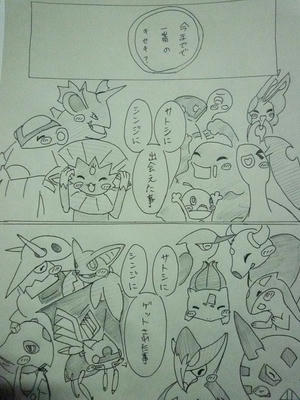 今までで
一番の
キセキ?
サトシに
シンジに
出会えた事
サトシに
シンジに
ゲットされた事